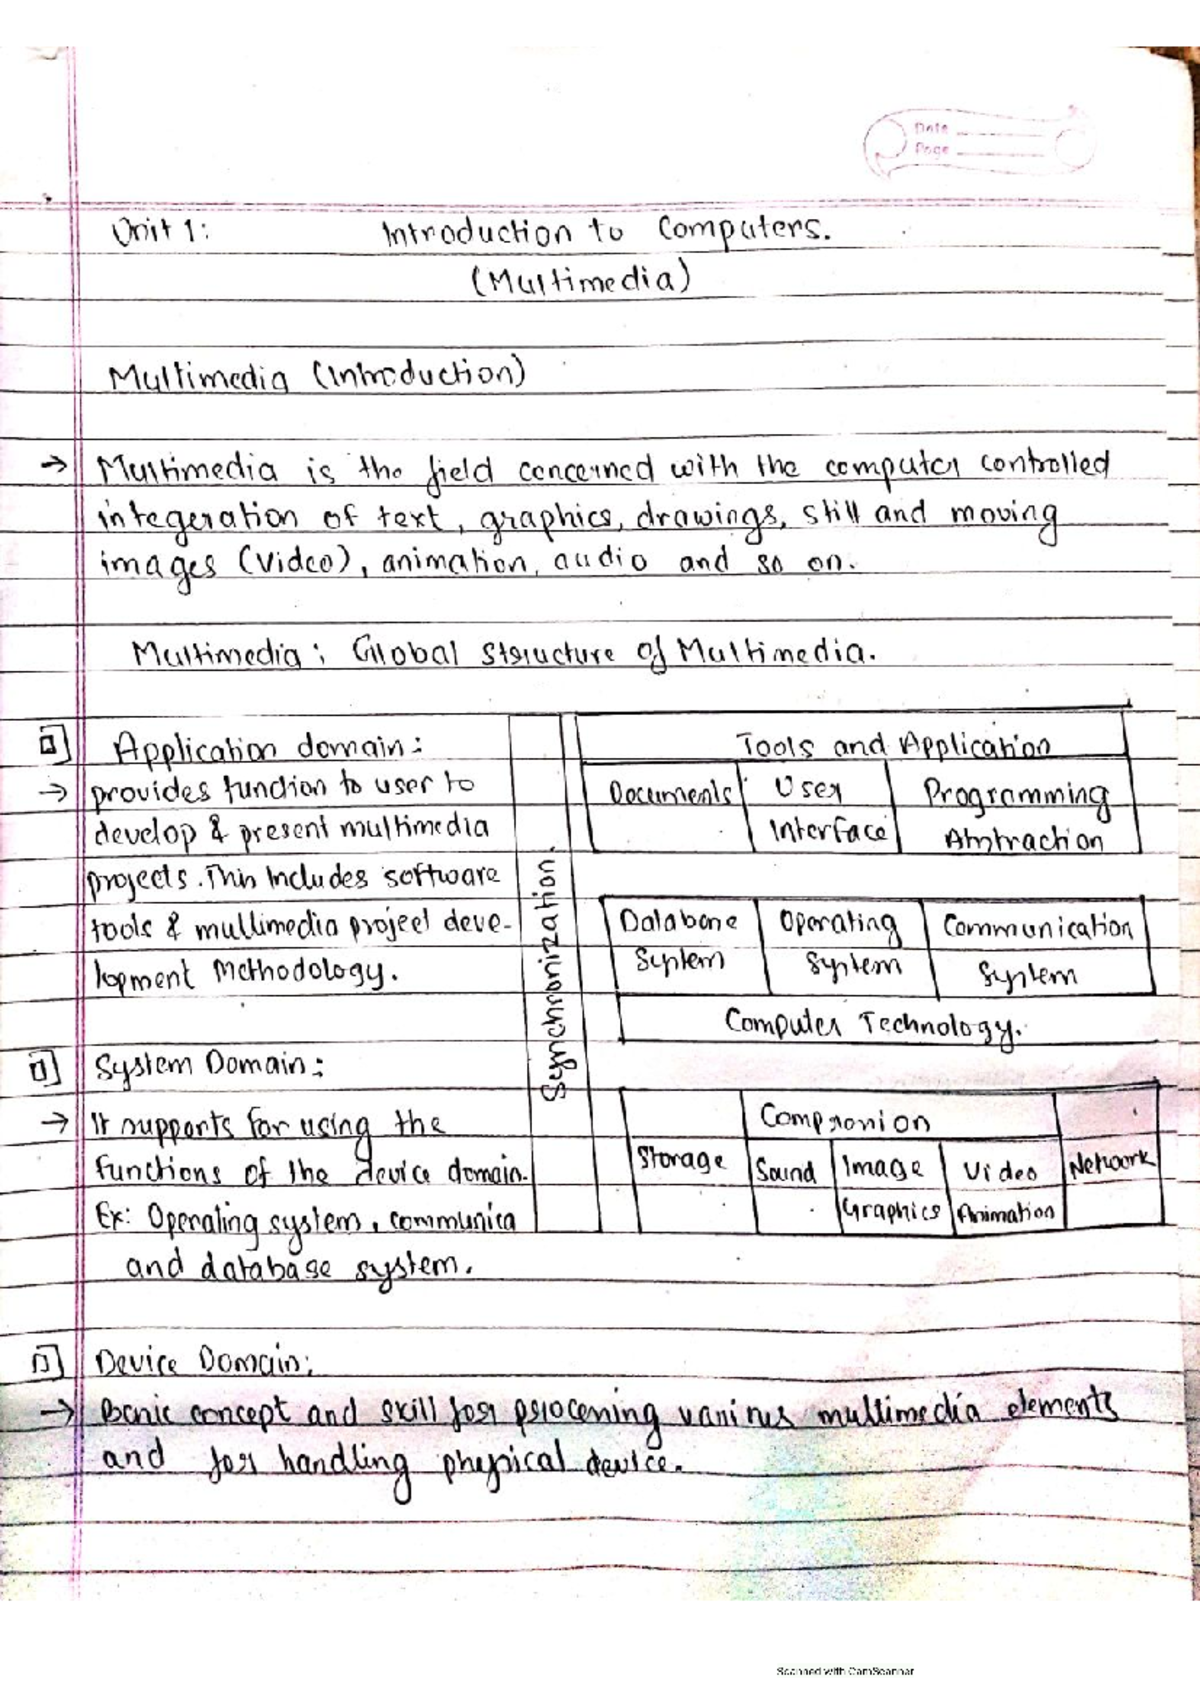 Date
Page
Unit 1: Introduction to Computers.
(Multimedia)
Multimedia (Introduction)
→ Multimedia is the field concerned with the computer controlled
integeration of text, graphics, drawings, still and moving
images (Video), animation, audio and so on.
Multimedia: Global Structure of Multimedia.
Application domain:
→ provides function to user to
develop & present multimedia
projects. This Includes software
tools & multimedia project deve-
lopment Methodology.
System Domain:
→ It supports for using the
functions of the device domain.
Ex: Operating system, communica
and database system.
Synchronization.
Tools and Application
Documents User Programming
Interface Abstraction
Database Operating Communication
System System System
Computer Technology.
Compronion
Storage Sound Image Video Network
Graphics Animation
Device Domain:
→ Basic concept and skill for processing various multimedia elements
and for handling physical device.
Scanned with CamScanner